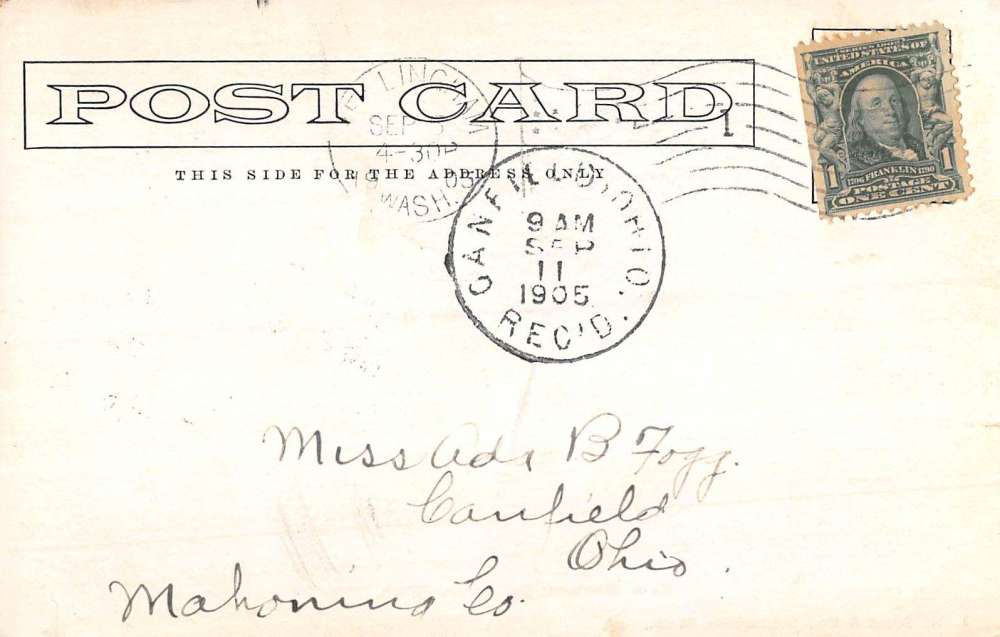 POST CARD
THIS SIDE FOR THE ADDRESS ONLY
SEP
4-30P
05
WASH.
1
SERIES 1902
UNITED STATES OF
AMERICA
1 1
1706 FRANKLIN 1790
POSTAGE
ONE CENT
CANFIELD, OHIO.
9 AM
SEP
11
1905
REC'D.
Miss Ada B Fogg.
Canfield
Ohio.
Mahoning Co.